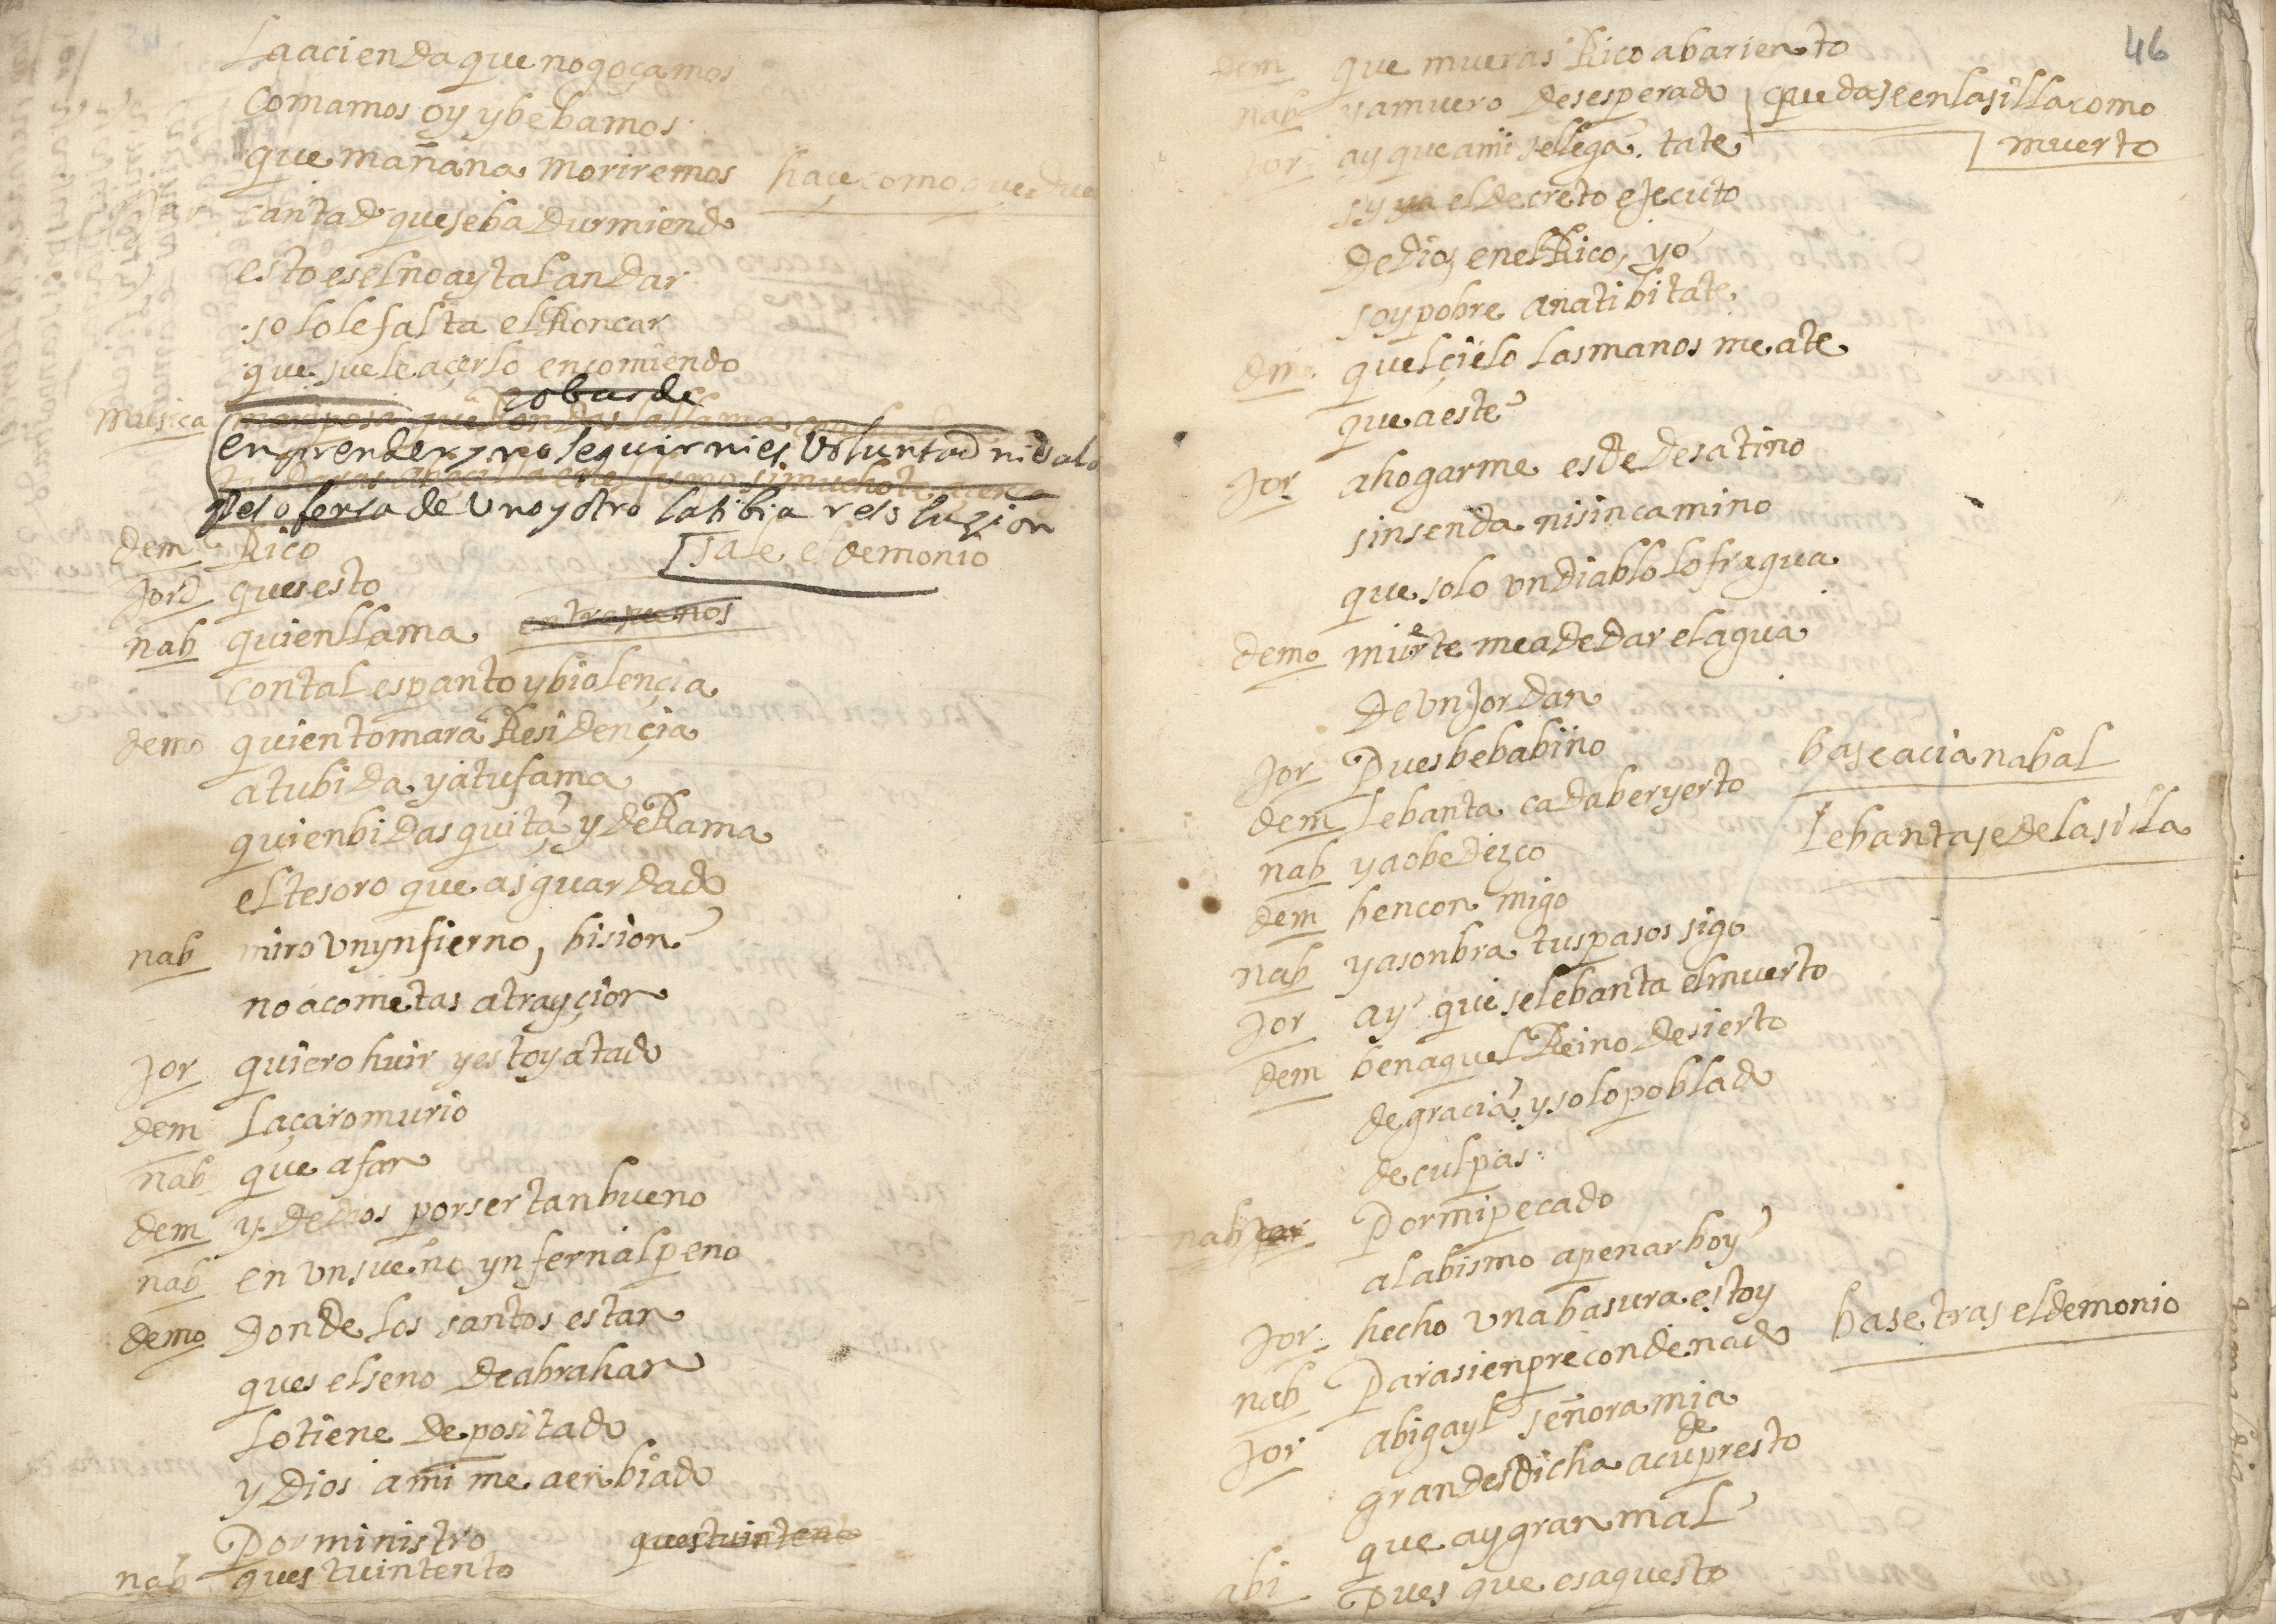 La acienda que no goçamos
comamos oy y bebamos
que mañana moriremos haçe como que due
Jor cantad que se ba durmiendo
esto es el no ay tal andar
solo le falta el Roncar
que suele açerlo en comiendo
cobarde
musica mariposa que Rondas la llama
enprender y no seguir ni es voluntad ni valo
si mucho te açer
peso fersa de uno y otro la tibia resoluzion
dem Rico sale el demonio
Jord ques esto
nab quien llama
con tal espanto y biolençia
demo quien tomara Residençia
a tu bida y a tu fama
quien bidas quita y deRama
el tesoro que as guardado
nab miro un ynfierno, bision
no acometas a trayçion
Jor quiero huir y estoy atado
dem Laçaro murio
nab que afan
dem y de dios por ser tan bueno
nab en un sueño ynfernal peno
demo donde los santos estan
ques el seno de abrahan
lo tiene depositado
y Dios a mi me a enbiado
Por ministro ques tu intento
nab ques tu intento
46
dem que mueras Rico abariento
nab ya muero desesperado quedase en la silla como
muerto
Jor ay que a mi se llega. tate
sy ya el decreto ejecuto
de dios en el Rico, yo
soy pobre anatibitate
dem quel çielo las manos me ate
que a este
Jor ahogarme es de desatino
sin senda ni sin camino
que solo un diablo lo fragua
demo muerte me a de dar el agua
de un Jordan
Jor Pues beba bino base açia nabal
dem lebanta cadaber yerto
nab ya obedezco lebantase de la silla
dem ben con migo
nab ya sonbra tus pasos sigo
Jor ay que se lebanta el muerto
dem ben aquel Reino desierto
de gracia y solo poblado
de culpas
nab Por mi pecado
al abismo a penar boy
Jor hecho una basura estoy
nab Para sienpre condenado base tras el demonio
Jor abigayl señora mia
gran desdicha acude presto
que ay gran mal
abi pues que es aquesto